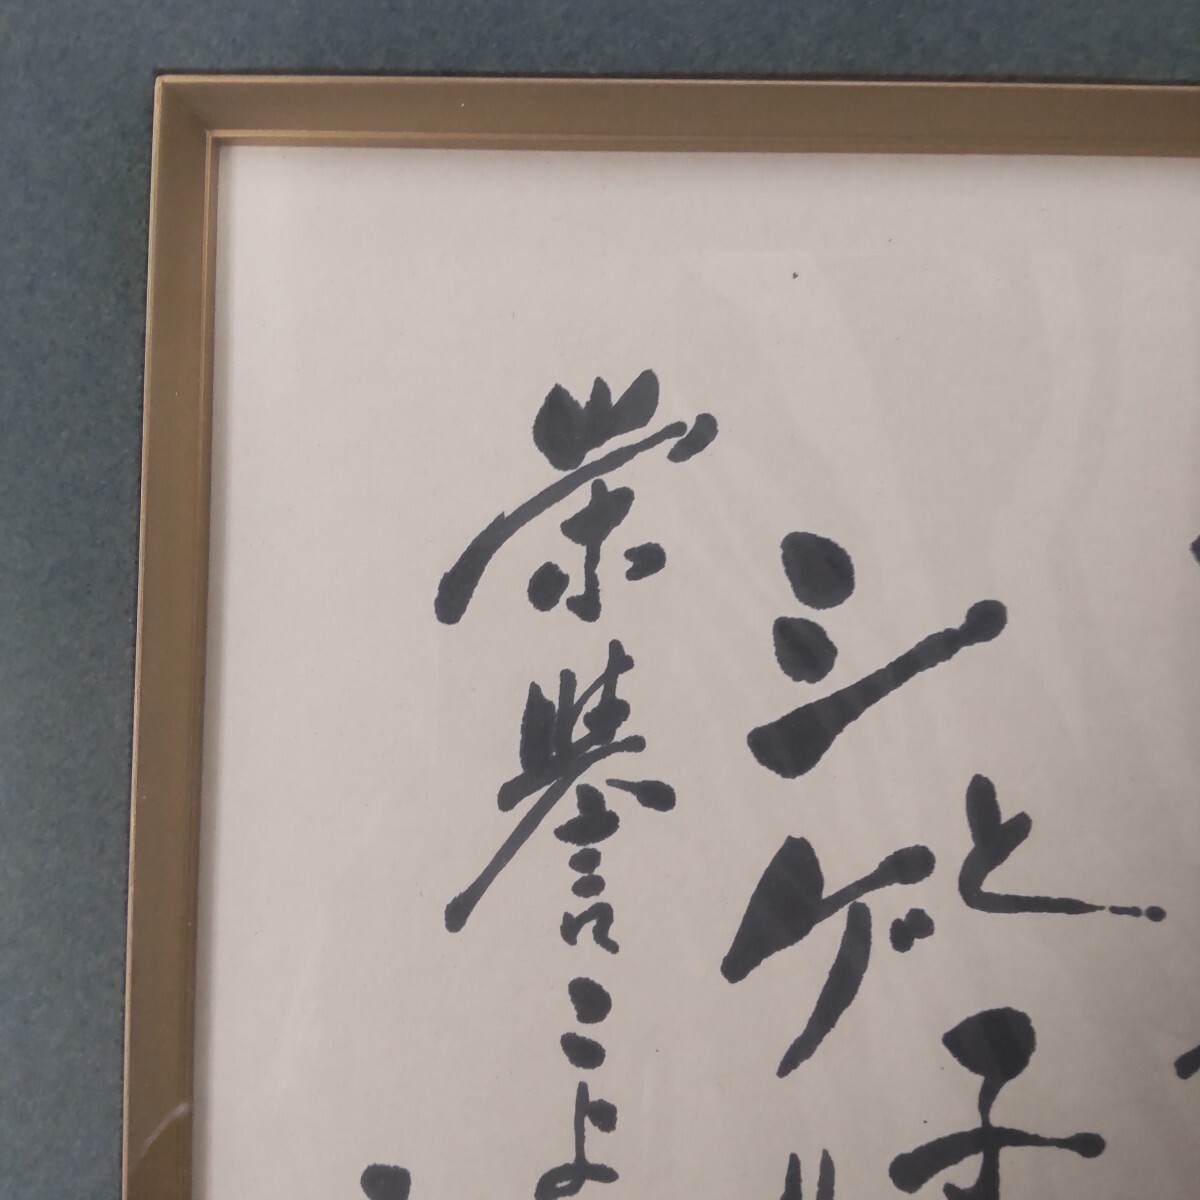 と子
シゲ
栄誉こよ